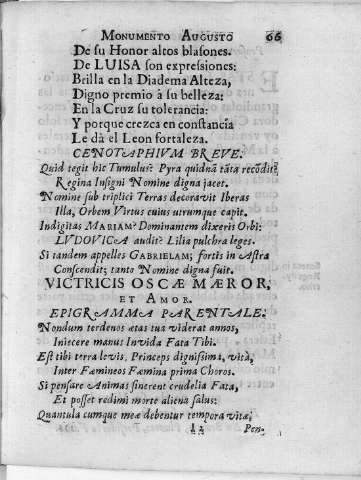 MONUMENTO AUGUSTO 66
De su Honor altos blasones.
De LUISA son expressiones:
Brilla en la Diadema Alteza,
Digno premio à su belleza:
En la Cruz su tolerancia:
Y porque crezca en constancia
Le dà el Leon fortaleza.
CENOTAPHIUM BREVE.
Quid tegit hic Tumulus? Pyra quidnã tãta recõdit?
Regina Insigni Nomine digna jacet.
Nomine sub triplici Terras decoravit Iberas
Illa, Orbem Virtus cuius utrumque capit.
Indigitas MARIAM? Dominantem dixeris Orbi:
LVDOVICA audit? Lilia pulchra leges.
Si tandem appelles GABRIELAM; fortis in Astra
Conscendit; tanto Nomine digna fuit.
VICTRICIS OSCÆ MÆROR,
ET AMOR.
EPIGRAMMA PARENTALE.
Nondum terdenos ætas tua viderat annos,
Iniecere manus Invida Fata Tibi.
Est tibi terra levis, Princeps dignissima, vità,
Inter Fœmineos Fœmina prima Choros.
Si pensare Animas sinerent crudelia Fata,
Et posset redimi morte aliena salus:
Quantula cumque meæ debentur tempora vitæ,
I 2 Pen-